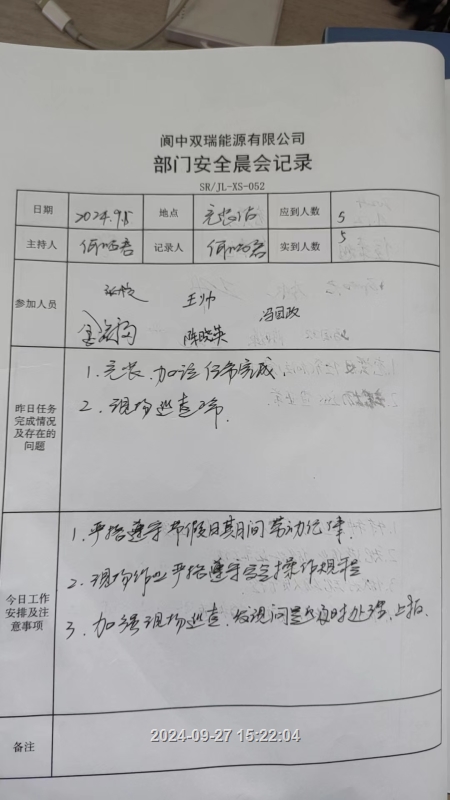 阆中双瑞能源有限公司
部门安全晨会记录
SR/JL-XS-052
日期 2024.9.5 地点 充装站 应到人数 5
主持人 记录人 实到人数 5
参加人员 王帅 冯国政
陈晓英
昨日任务完成情况及存在的问题
1. 充装、加注任务完成.
2. 现场巡查正常.
今日工作安排及注意事项
1. 严格遵守节假日期间劳动纪律.
2. 现场作业严格遵守安全操作规程
3. 加强现场巡查,发现问题及时处理、上报.
备注
2024-09-27 15:22:04